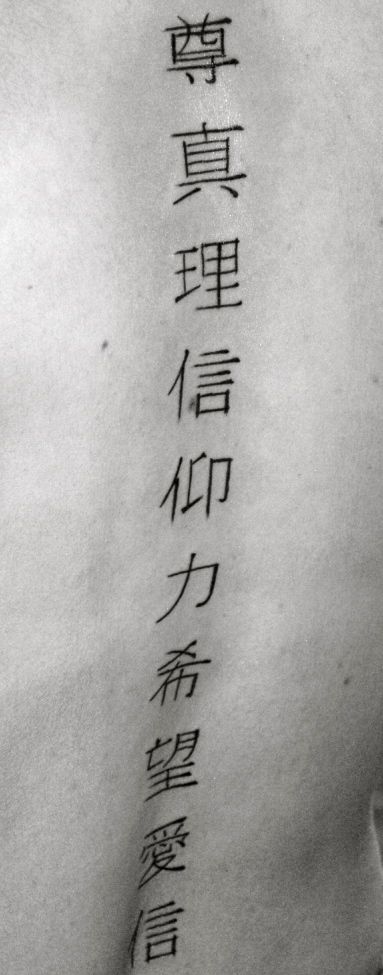 尊真理信仰力希望愛信